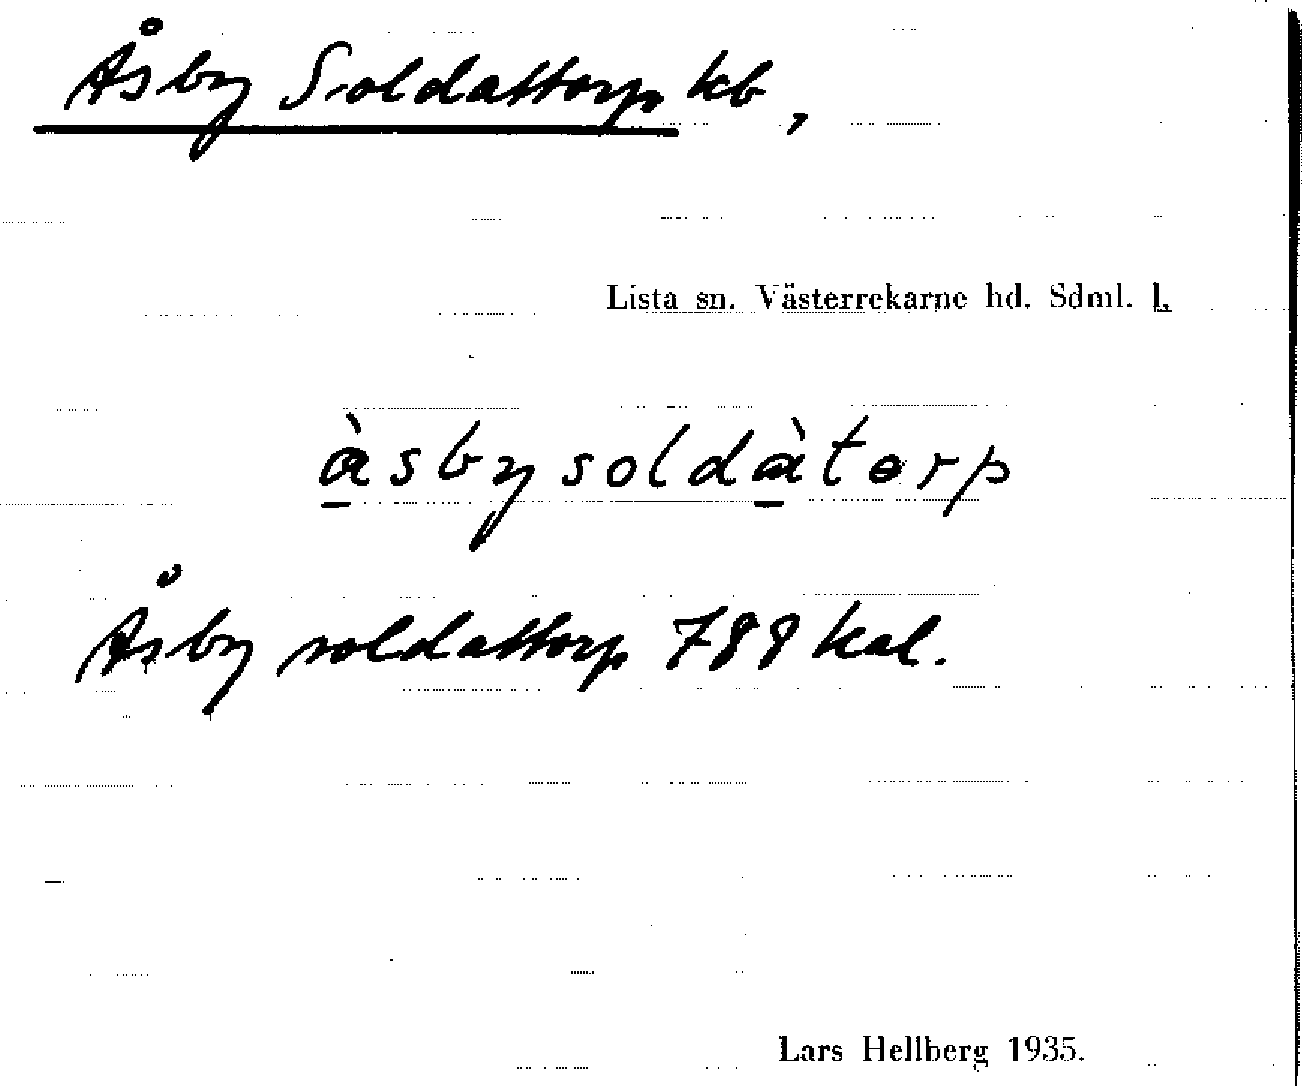 Åsby Soldattorp kb,
Lista sn. Västerrekarne hd. Sdml. l.
åsbysoldàtorp
Åsby soldattorp 788 kal.
Lars Hellberg 1935.